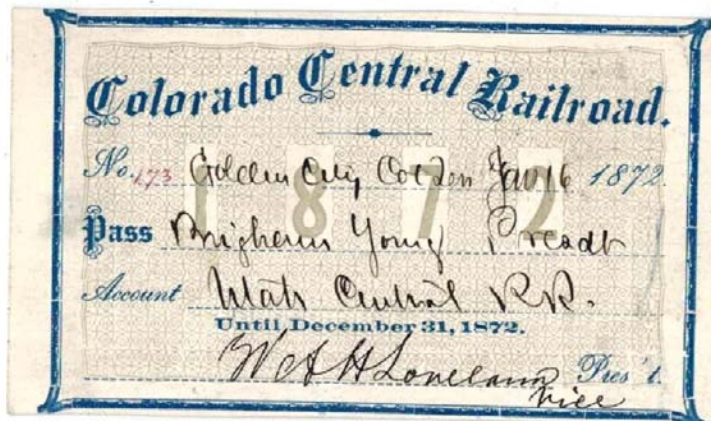 Colorado Central Railroad.
No. 173 Golden City Col Ter Jan 16 1872.
1872
Pass Brigham Young Presdt
Account Utah Central RR.
Until December 31, 1872.
W A H Loveland Pres't.
Vice